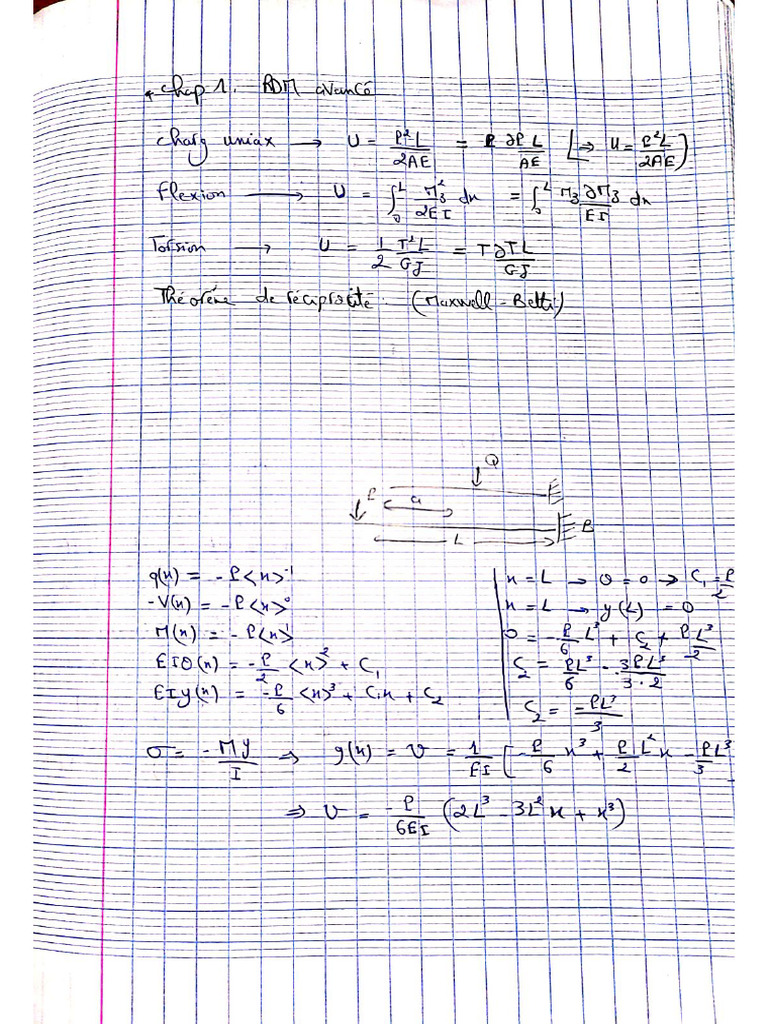 * Chap 1. RDM avancé
Charg uniax → U = P²L/2AE = P ∂P L/AE [⇒ U = P²L/2AE)
Flexion → U = ∫₀ᴸ M₃²/2EI dx = ∫₀ᴸ M₃ ∂M₃/EI dx
Torsion → U = 1/2 T²L/GJ = T∂TL/GJ
Théorème de réciprocité. (Maxwell-Betti)
Q
P
a
B
L
q(x) = -P<x>⁻¹
-V(x) = -P<x>⁰
M(x) = -P<x>¹
EIθ(x) = -P/2 <x>² + C₁
EIy(x) = -P/6 <x>³ + C₁x + C₂
x = L → θ = 0 → C₁ = P/2
x = L → y(L) = 0
0 = -P/6 L³ + C₂ + PL³/2
C₂ = PL³/6 - 3PL³/3·2
C₂ = -PL³/3
σ = -My/I ⇒ y(x) = v = 1/EI [-P/6 x³ + P/2 L²x - PL³/3
⇒ v = -P/6EI (2L³ - 3L²x + x³)